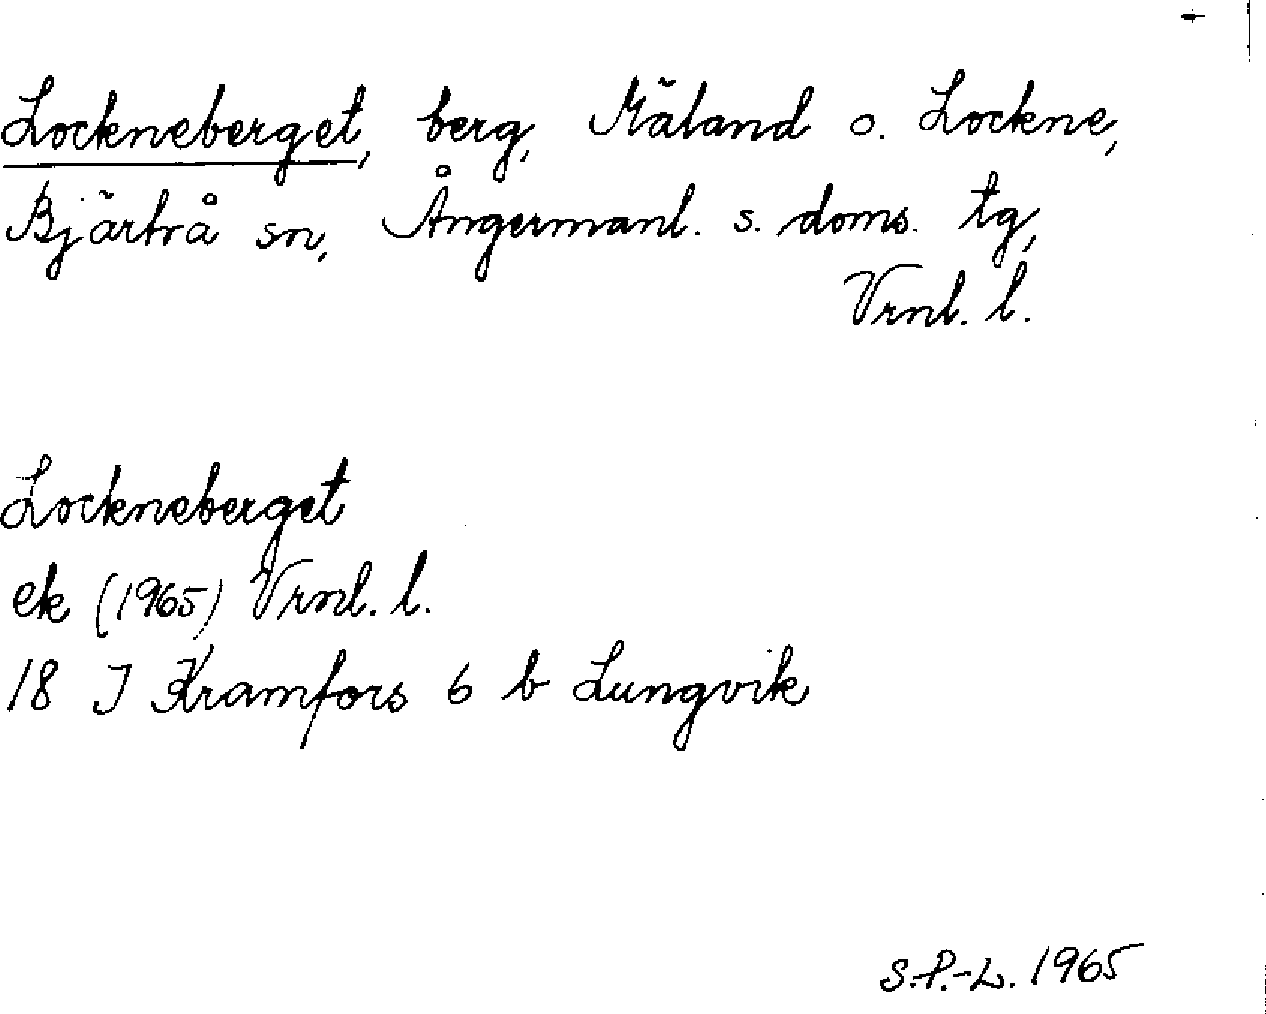 Lockneberget, berg, Mäland o. Lockne,
Bjärtrå sn, Ångermanl. s. doms. tg,
Vrnl. l.
Lockneberget
ek (1965) Vrnl. l.
18 J Kramfors 6 b Lungvik
S.P.-L. 1965